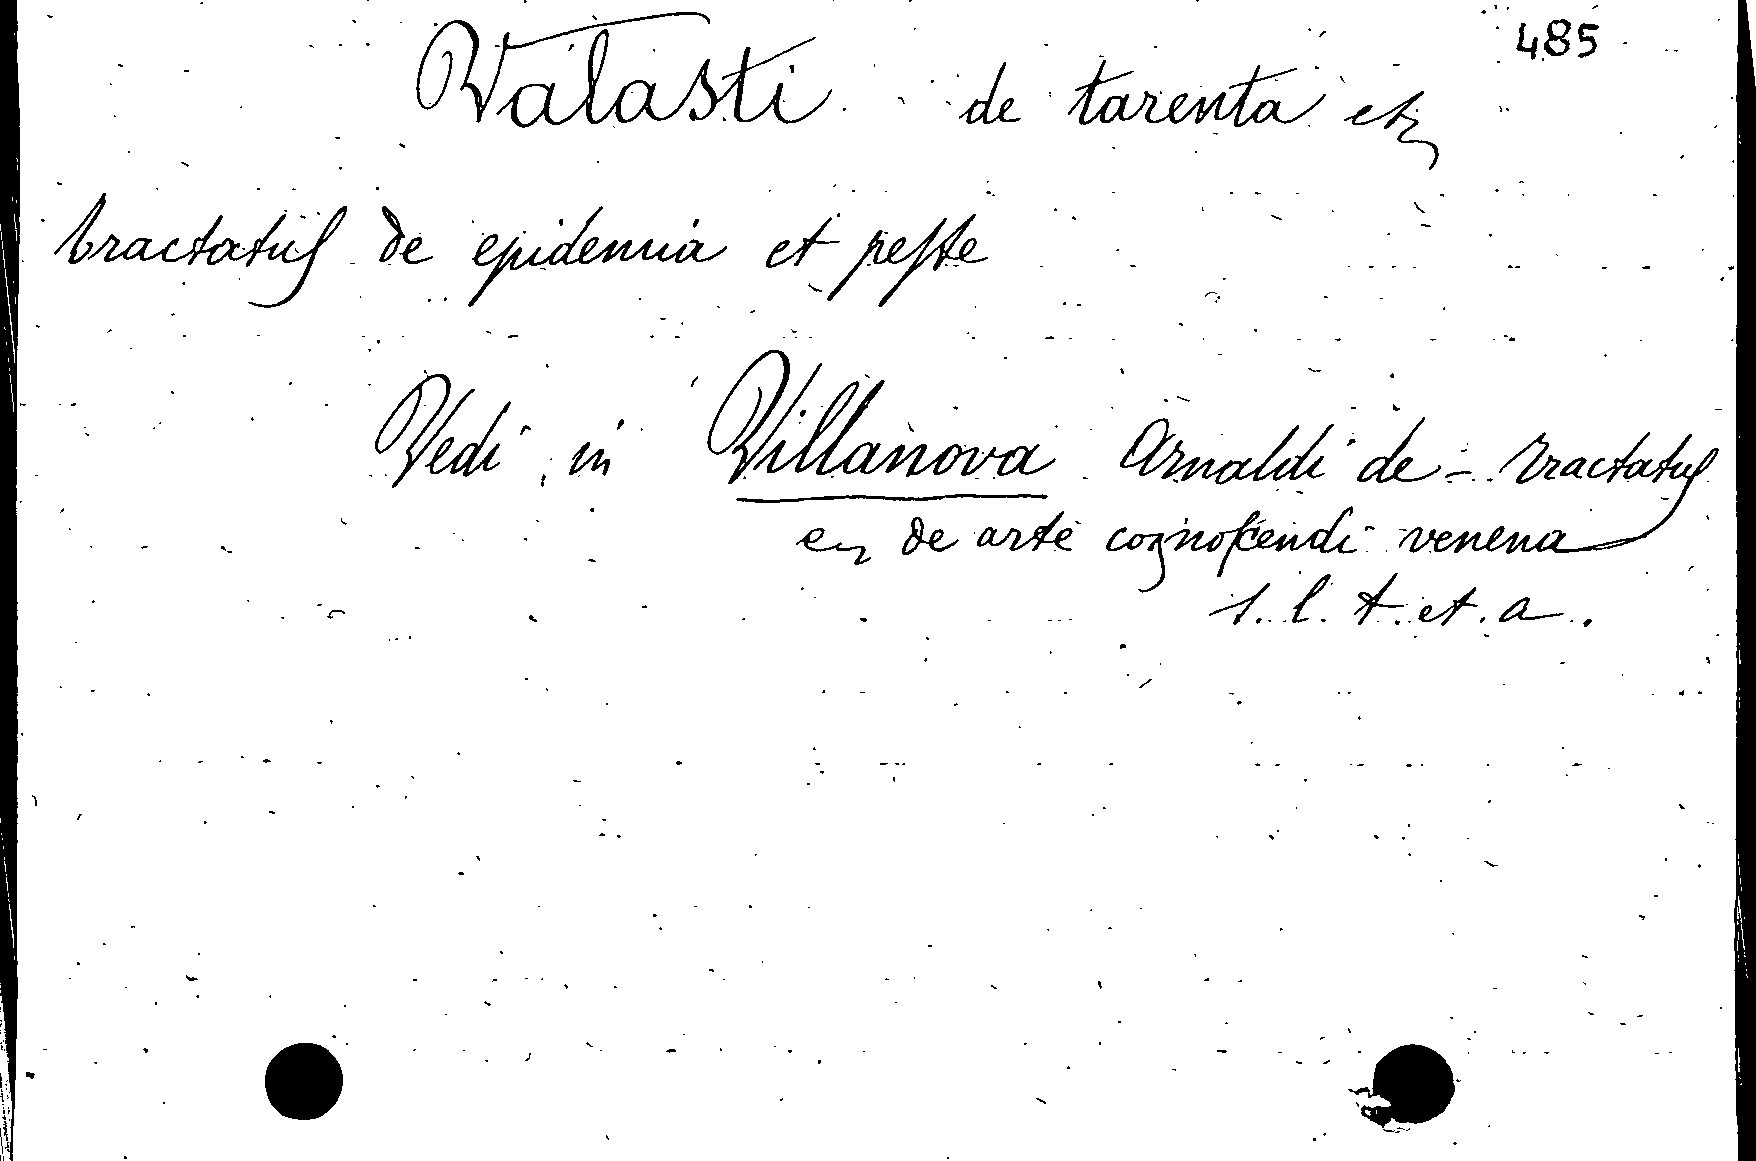 485
Valasti de tarenta etc
tractatus de epidemia et peste
Vedi in Villanova Arnaldi de - tractatus
de arte cognoscendi venena
s. l. t. et. a.